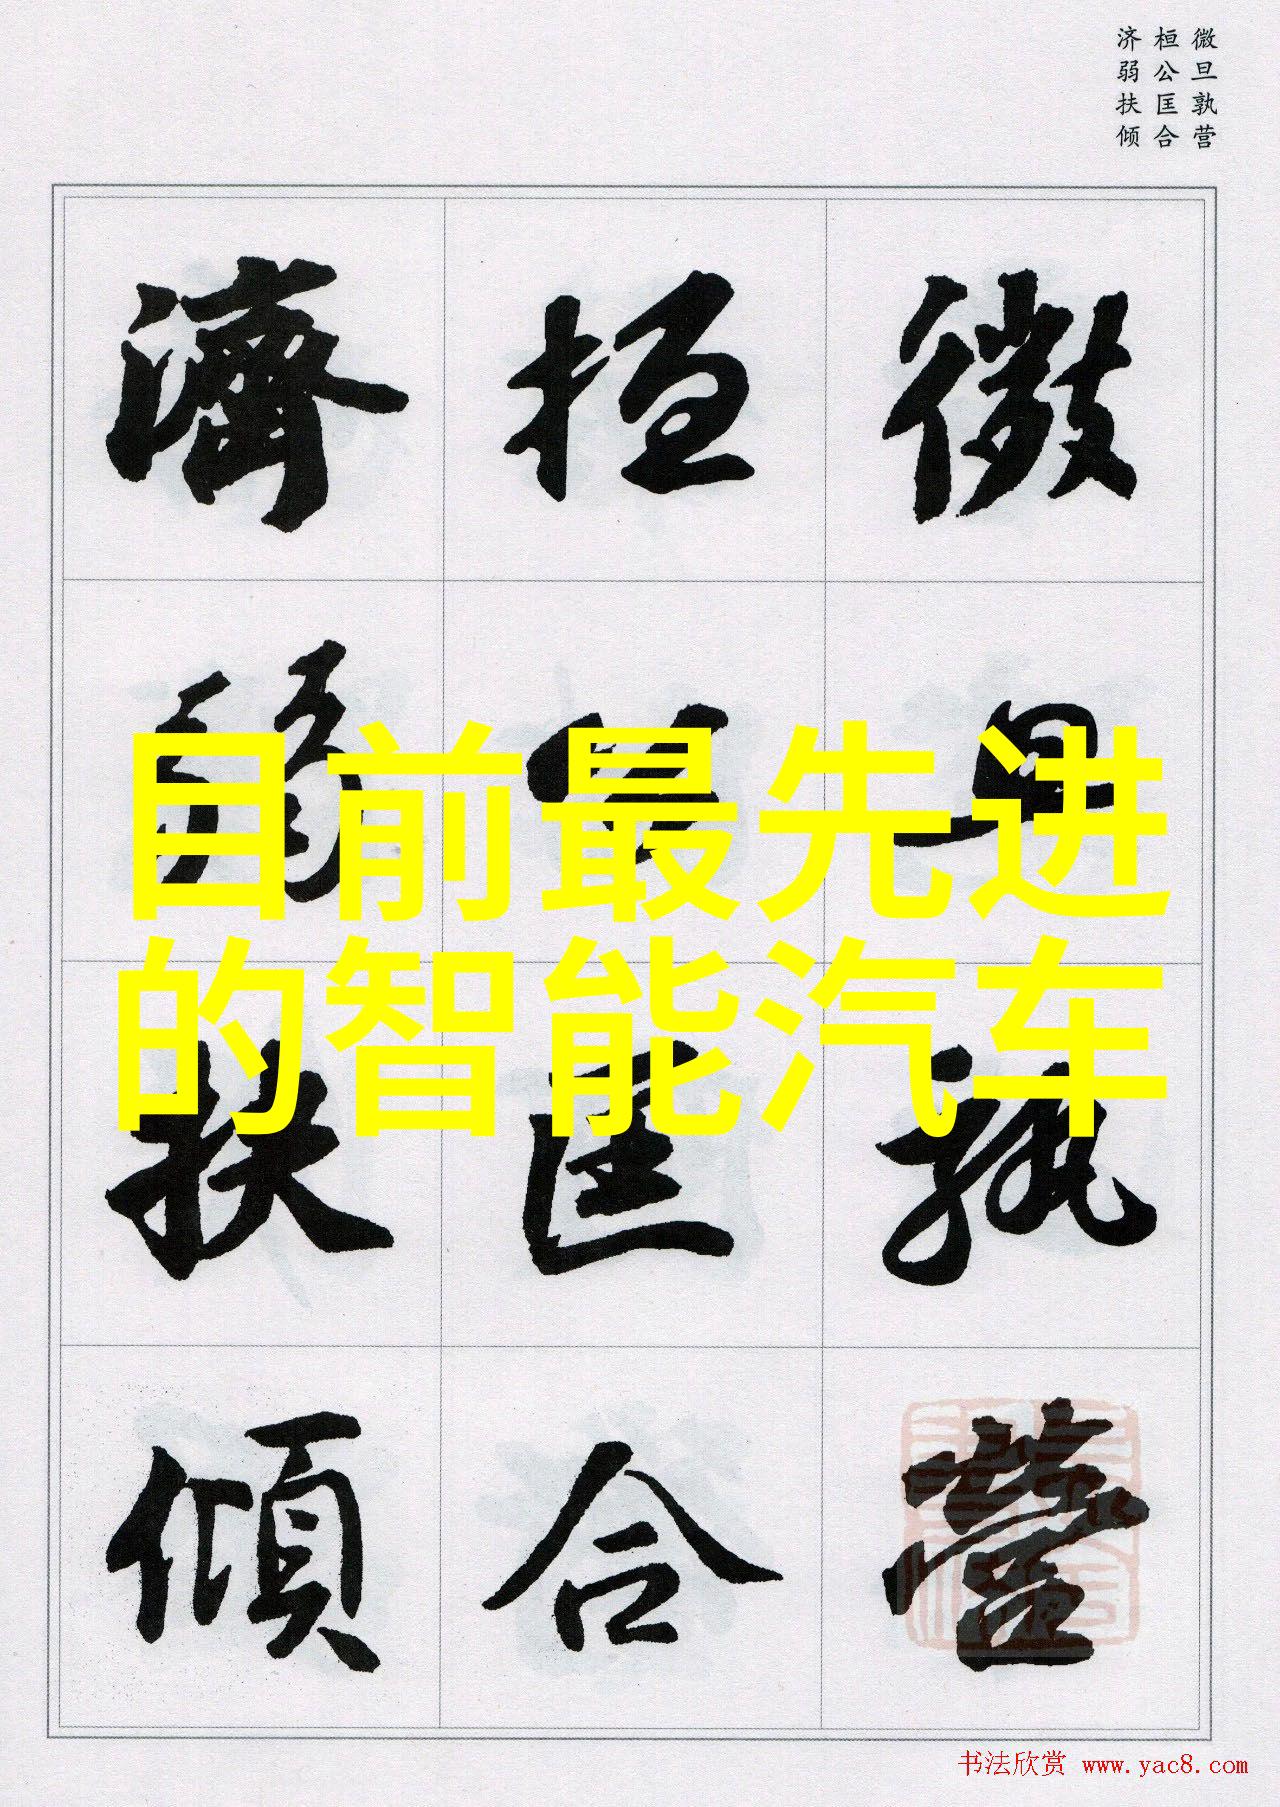 微旦孰营
桓公匡合
济弱扶倾
微旦孰營
桓公匡合
濟弱扶傾
目前最先进
的智能汽车
书法欣赏 www.yac8.com